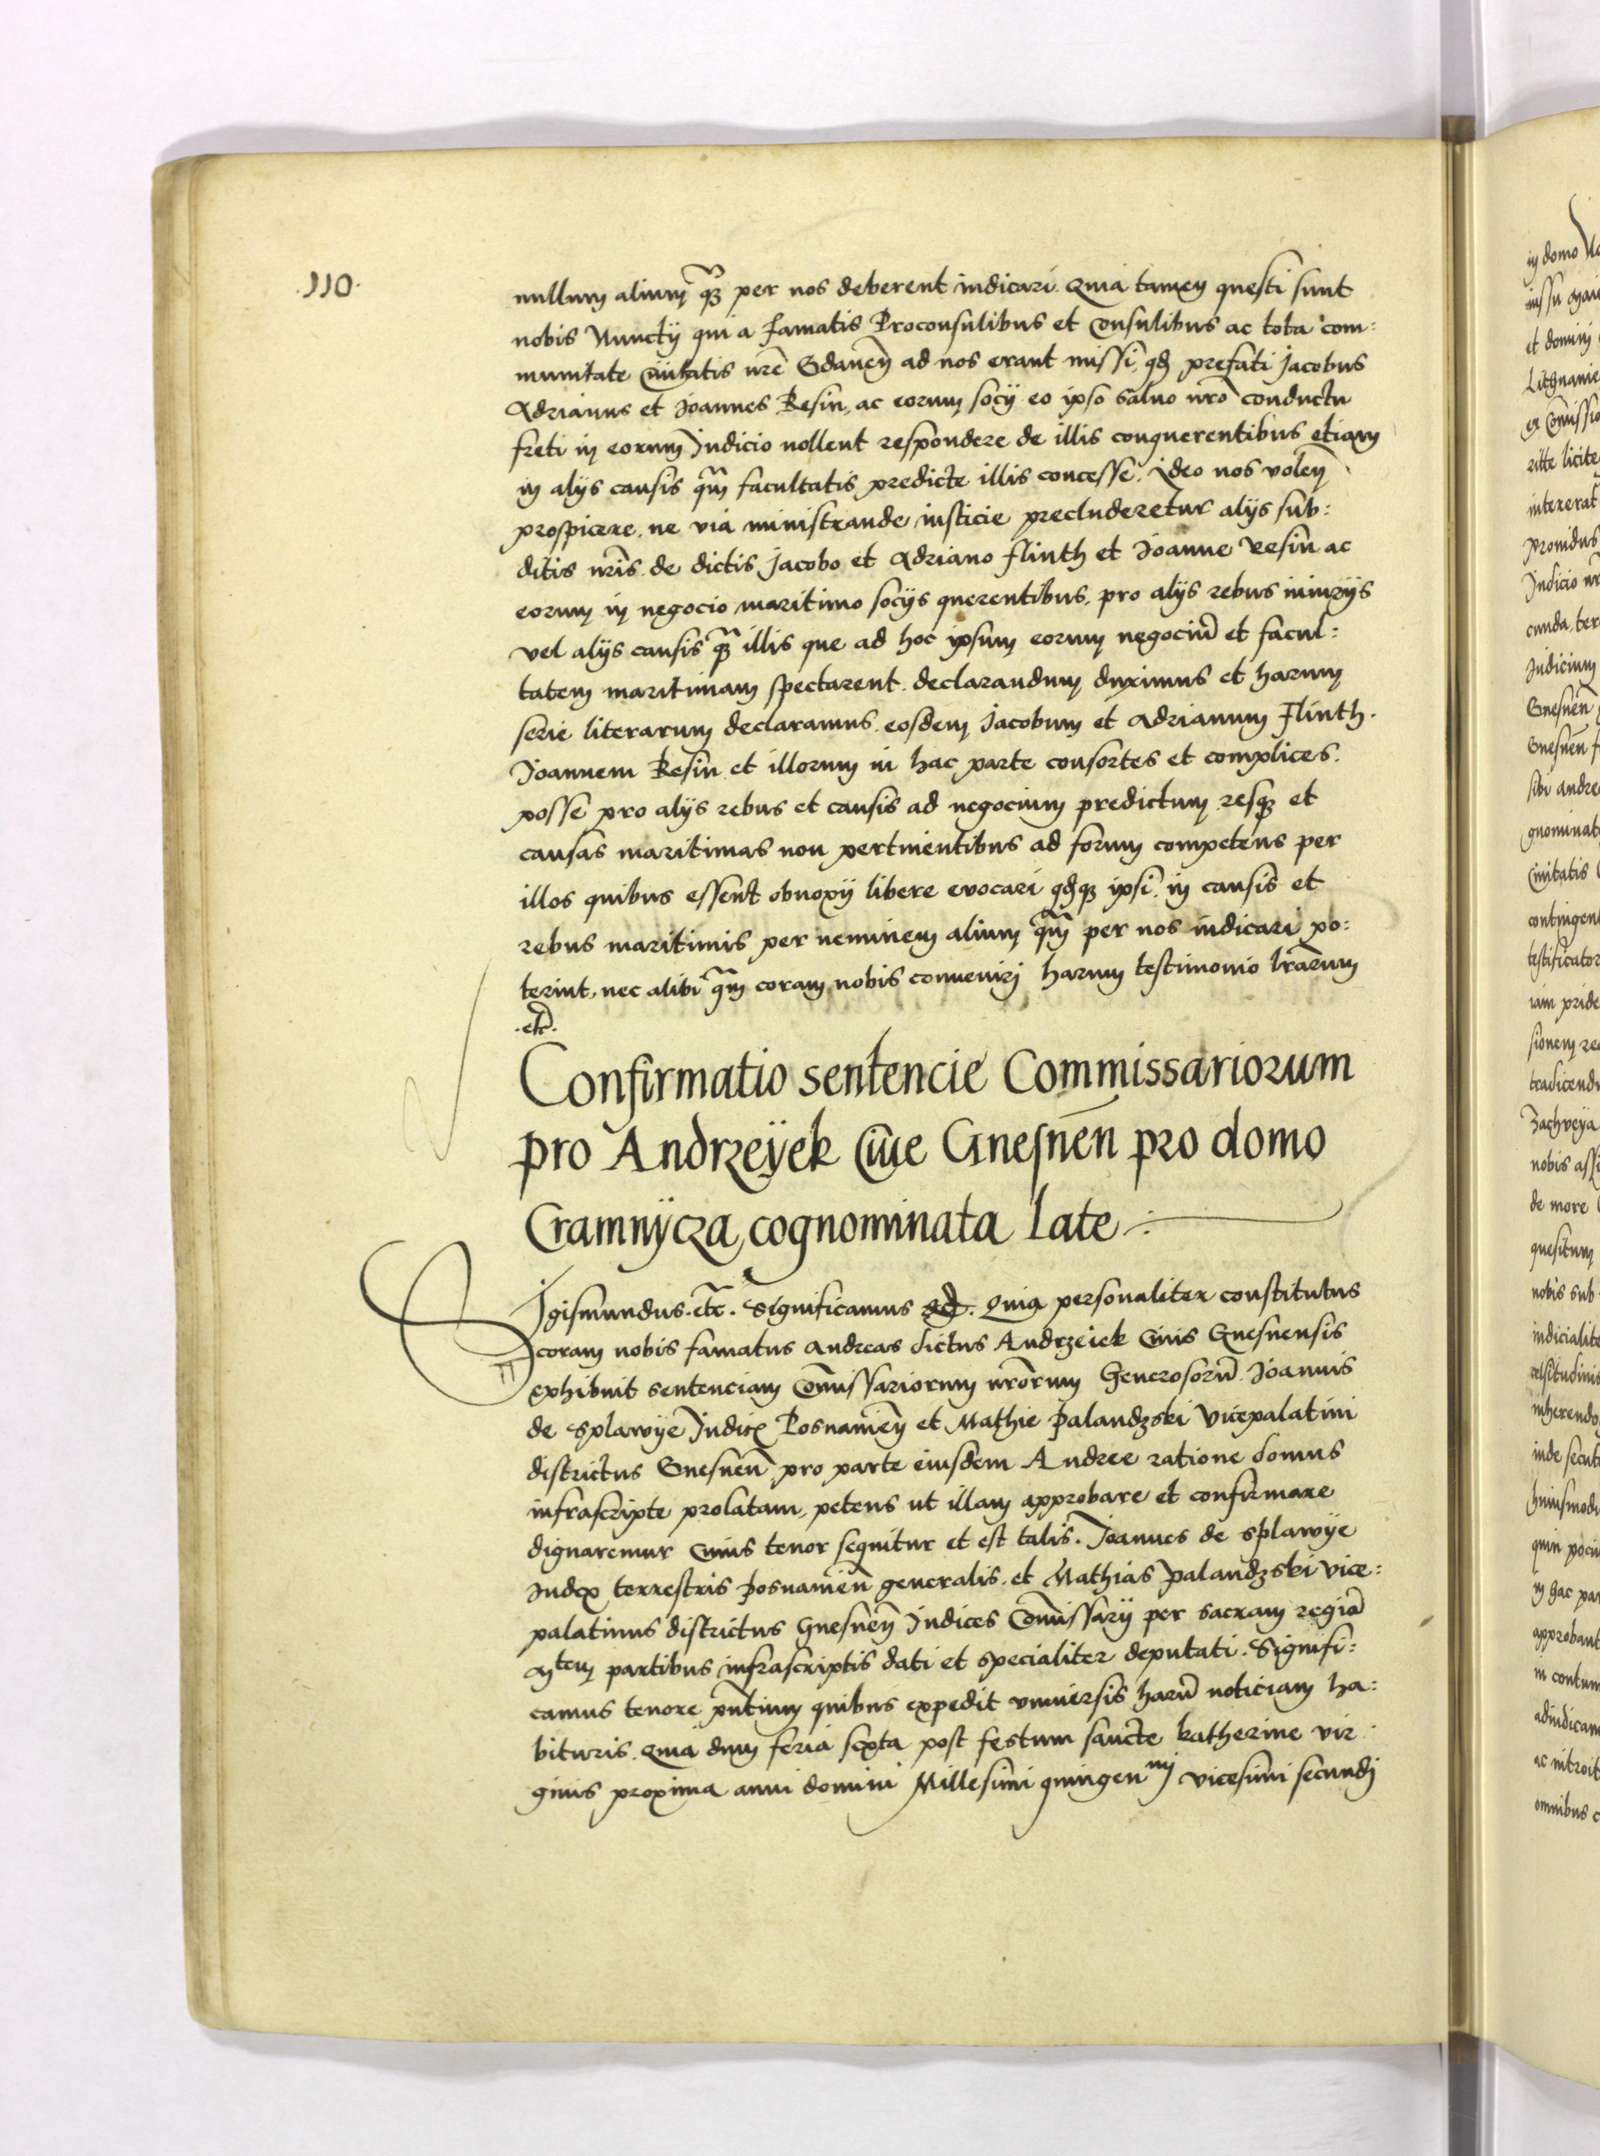 .110.
nullum alium q̃ꝫ per nos deberent iudicari. Quia tamen questi sunt
nobis Nunctij qui a famatis Proconsulibus et Consulibus ac tota com:
munitate Ciuitatis nr̃e Gdaneñ ad nos erant missi, qd prefati Jacobus
Adrianus et Joannes Resin, ac eorum socij eo ipso saluo nr̃o conductu
freti in eorum Judicio nollent respondere de illis conquerentibus etiam
in alijs causis q̃m facultatis predicte illis concesse. Ideo nos voleñ
prospicere, ne via ministrande iusticie precluderetur alijs sub:
ditis nr̃is de dictis Jacobo et Adriano flinth et Joanne Resin ac
eorum in negocio maritimo socijs querentibus, pro alijs rebus iniurijs
vel alijs causis q̃ꝫ illis que ad hoc ipsum eorum negociũ et facul:
tatem maritimam spectarent. declarandum duximus et harum
serie literarum declaramus. eosdem Jacobum et Adrianum Flinth.
Joannem Resin et illorum in hac parte consortes et complices.
posse pro alijs rebus et causis ad negocium predictum resqꝫ et
causas maritimas non pertinentibus ad forum competens per
illos quibus essent obnoxij libere evocari qdqꝫ ipsi in causis et
rebus maritimis per neminem alium q̃m per nos iudicari po:
terint, nec alibi q̃m coram nobis conveniri harum testimonio lr̃arum
.etc̃.
Confirmatio sentencie Commissariorum
pro Andrzeÿek Ciue Gnesneñ pro domo
Cramnÿcza, cognominata Late :
Sigismundus. etc̃. Significamus etc̃. Quia personaliter constitutus
coram nobis famatus Andreas dictus Andrzeiek Ciuis Gnesnensis
exhibuit sentenciam Com̃issariorum nr̃orum Generosorũ Joannis
de Splawÿe Judicis Posnanieñ et Mathie Palandzski Vicepalatini
districtus Gnesneñ pro parte eiusdem Andree ratione domus
infrascripte prolatam, petens ut illam approbare et confirmare
dignaremur Cuius tenor sequitur et est talis. Joannes de Splawÿe
Judex terrestris Posnanieñ generalis. et Mathias Palandzski Vice:
palatinus districtus Gnesneñ Judices Com̃issarij per sacram regiã
Mtem partibus infrascriptis dati et specialiter deputati. Signifi:
camus tenore pñtium quibus expedit vniuersis harũ noticiam ha:
bituris. Quia dum feria sexta post festum sancte katherine vir
ginis proxima anni domini Millesimi quingenmi vicesimi secundi